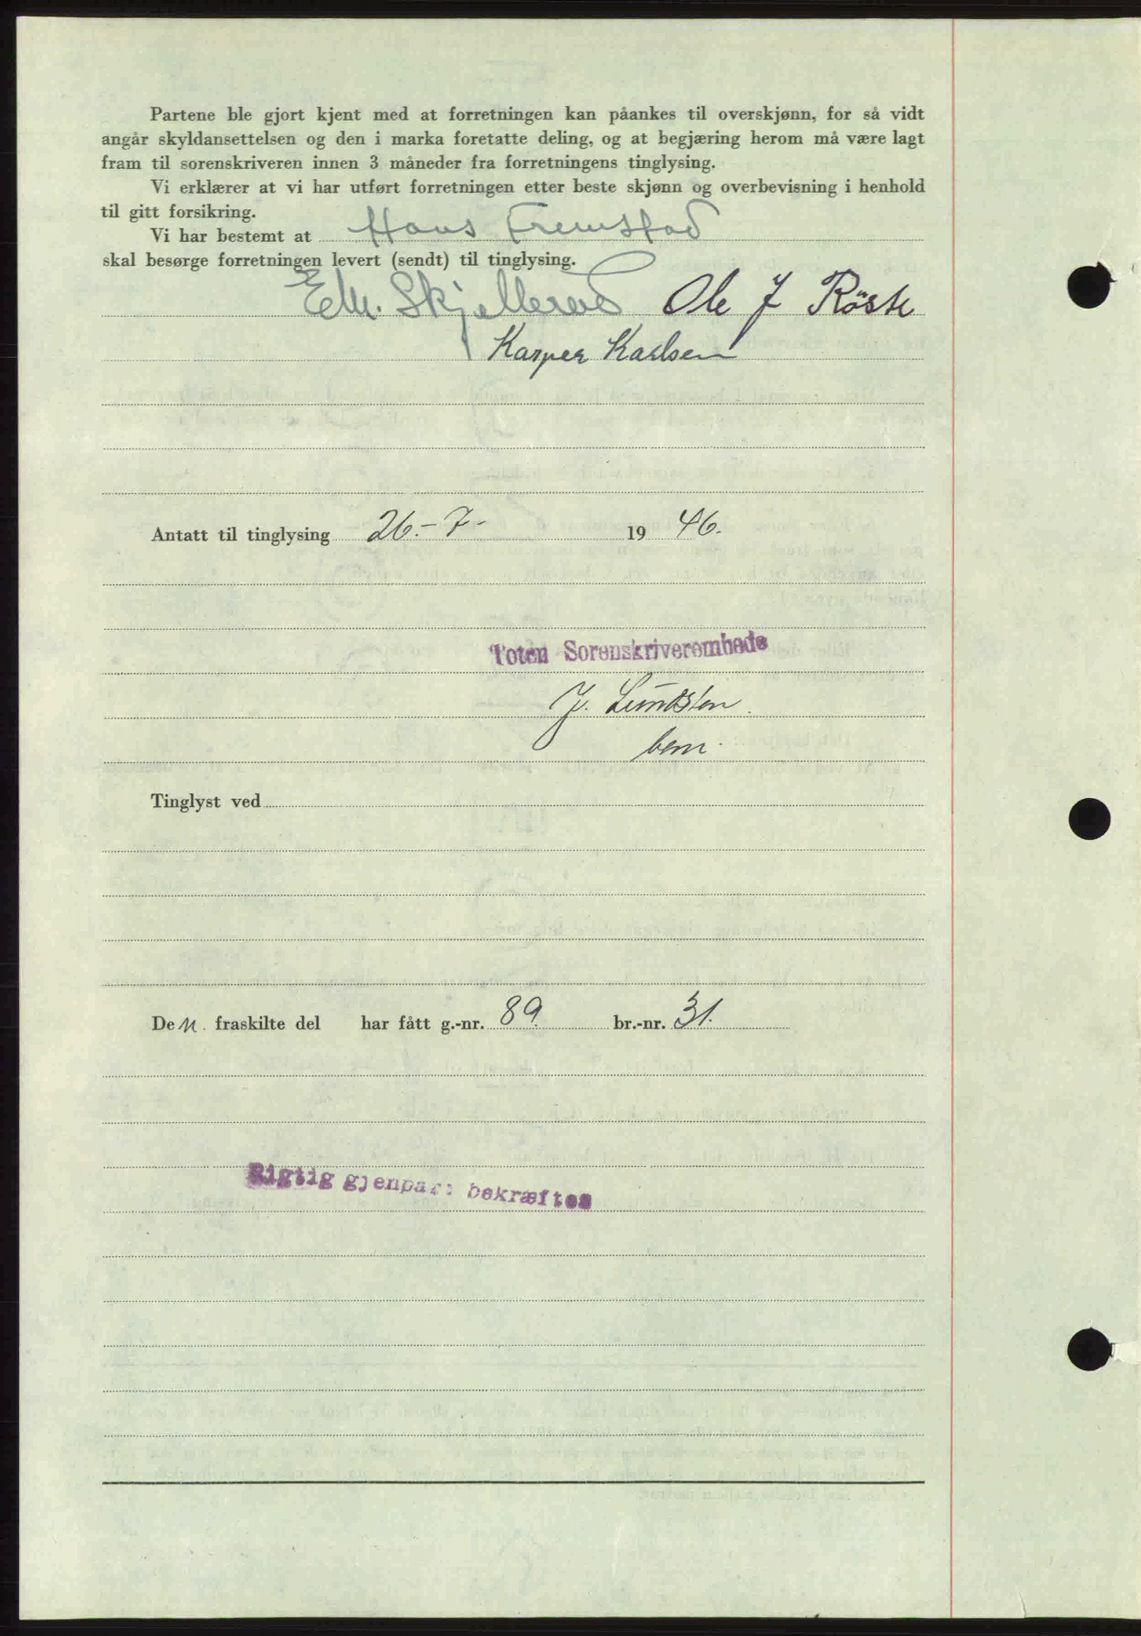 Partene ble gjort kjent med at forretningen kan påankes til overskjønn, for så vidt
angår skyldansettelsen og den i marka foretatte deling, og at begjæring herom må være lagt
fram til sorenskriveren innen 3 måneder fra forretningens tinglysing.
Vi erklærer at vi har utført forretningen etter beste skjønn og overbevisning i henhold
til gitt forsikring.
Vi har bestemt at Hans Fremstad
skal besørge forretningen levert (sendt) til tinglysing.
Edv. Skjellerud Ole J Röste
Kasper Karlsen
Antatt til tinglysing 26.-7- 1946.
Toten Sorenskriverembede
J. Lundsten
bem.
Tinglyst ved
Den. fraskilte del har fått g.-nr. 89. br.-nr. 31.
Rigtig gjenpart bekræftes